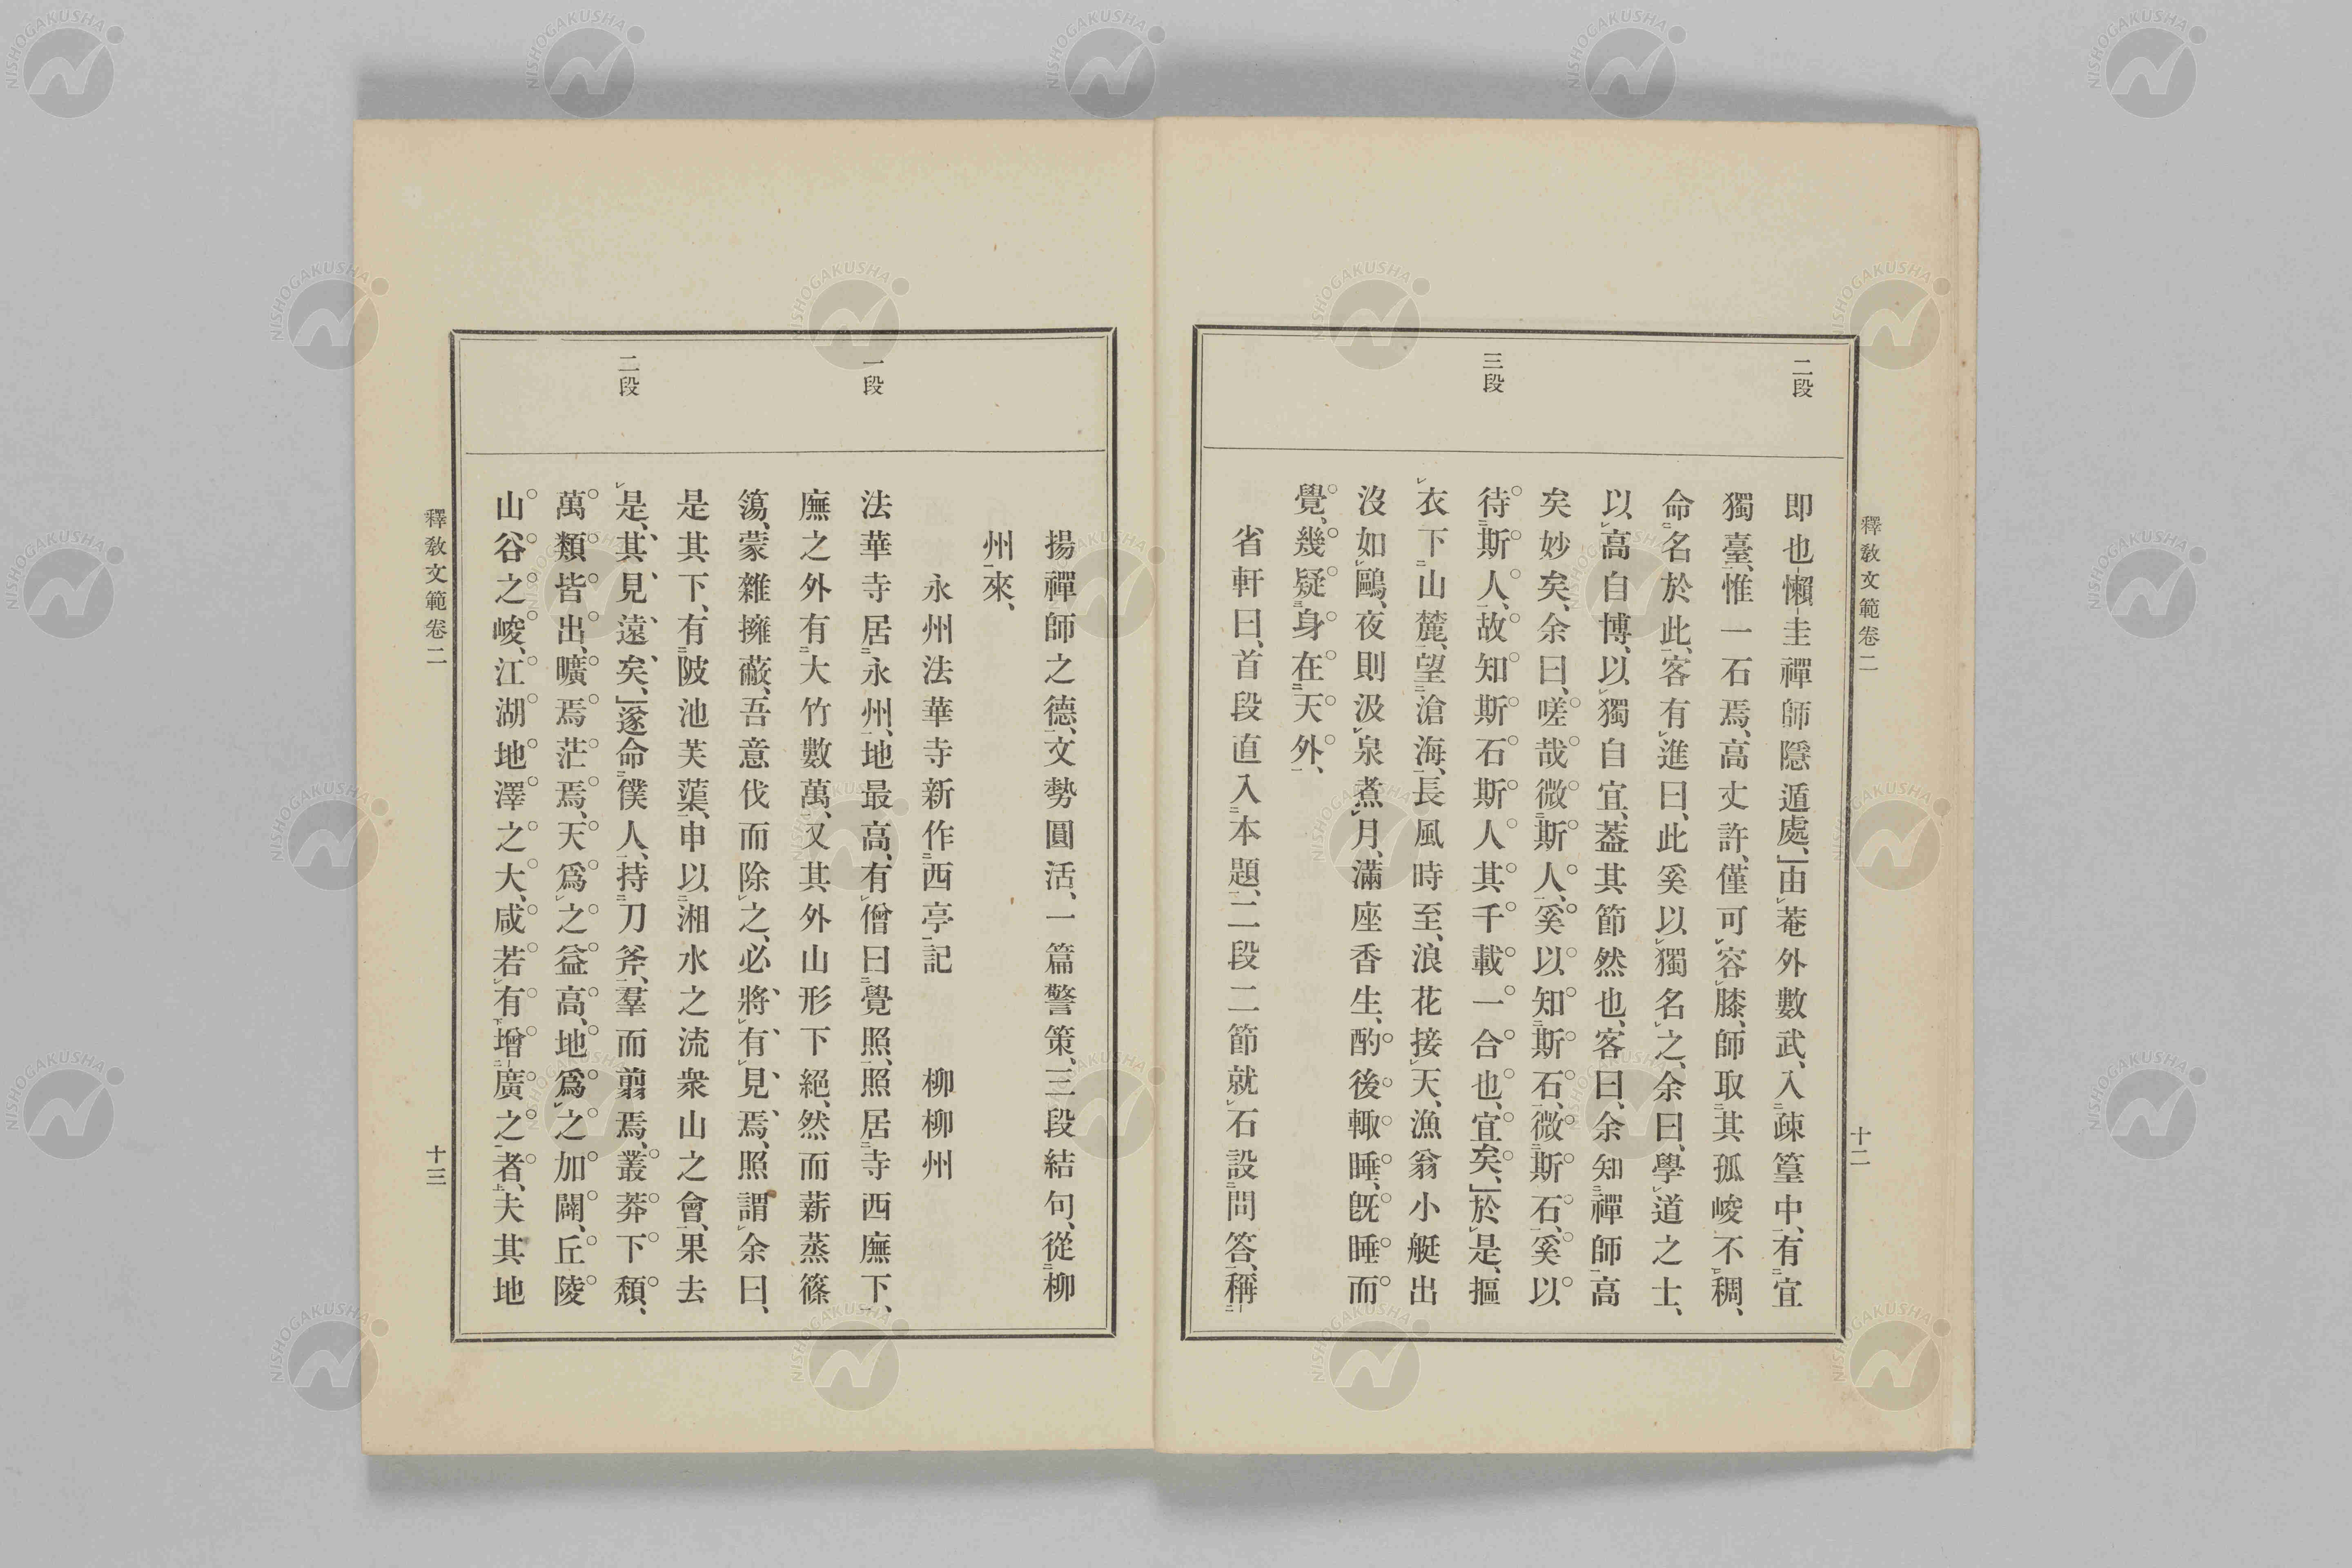 釋教文範卷二
十二
二段
三段
即也懶圭禪師隱遁處、由菴外數武、入疎篁中、有宜
獨臺、惟一石焉、高丈許、僅可容膝、師取其孤峻不稠、
命名於此、客有進曰、此奚以獨名之、余曰、學道之士、
以高自博、以獨自宜、蓋其節然也、客曰、余知禪師高
矣妙矣、余曰、嗟哉微斯人、奚以知斯石、微斯石、奚以
待斯人、故知斯石斯人其千載一合也、宜矣、於是、摳
衣下山麓、望滄海、長風時至、浪花接天、漁翁小艇出
沒如鷗、夜則汲泉煮月、滿座香生、酌後輙睡、旣睡而
覺、幾疑身在天外、
省軒曰、首段直入本題、二段二節就石設問答、稱
揚禪師之德、文勢圓活、一篇警策、三段結句、從柳
州來、
永州法華寺新作西亭記　柳柳州
一段
二段
法華寺居永州、地最高、有僧曰覺照、照居寺西廡下、
廡之外有大竹數萬、又其外山形下絕、然而薪蒸篠
簜、蒙雜擁蔽、吾意伐而除之、必將有見焉、照謂余曰、
是其下、有陂池芙蕖、申以湘水之流衆山之會、果去
是、其見遠矣、遂命僕人、持刀斧、羣而翦焉、叢莽下頹、
萬類皆出、曠焉茫焉、天爲之益高、地爲之加闢、丘陵
山谷之峻、江湖地澤之大、咸若有增廣之者、夫其地
釋教文範卷二
十三
NISHOGAKUSHA